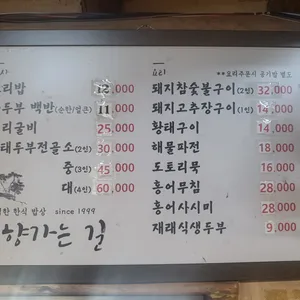 리밥 12,000
두부 백반(순한/얼큰) 11,000
리굴비 25,000
태두부전골소(2인) 30,000
중(3인) 45,000
대(4인) 60,000
한 한식 밥상 since 1999
향가는 길
요리 **요리주문시 공기밥 별도
돼지참숯불구이(2인) 32,000
돼지고추장구이(1인) 14,000
황태구이 14,000
해물파전 18,000
도토리묵 16,000
홍어무침 28,000
홍어사시미 28,000
재래식생두부 9,000